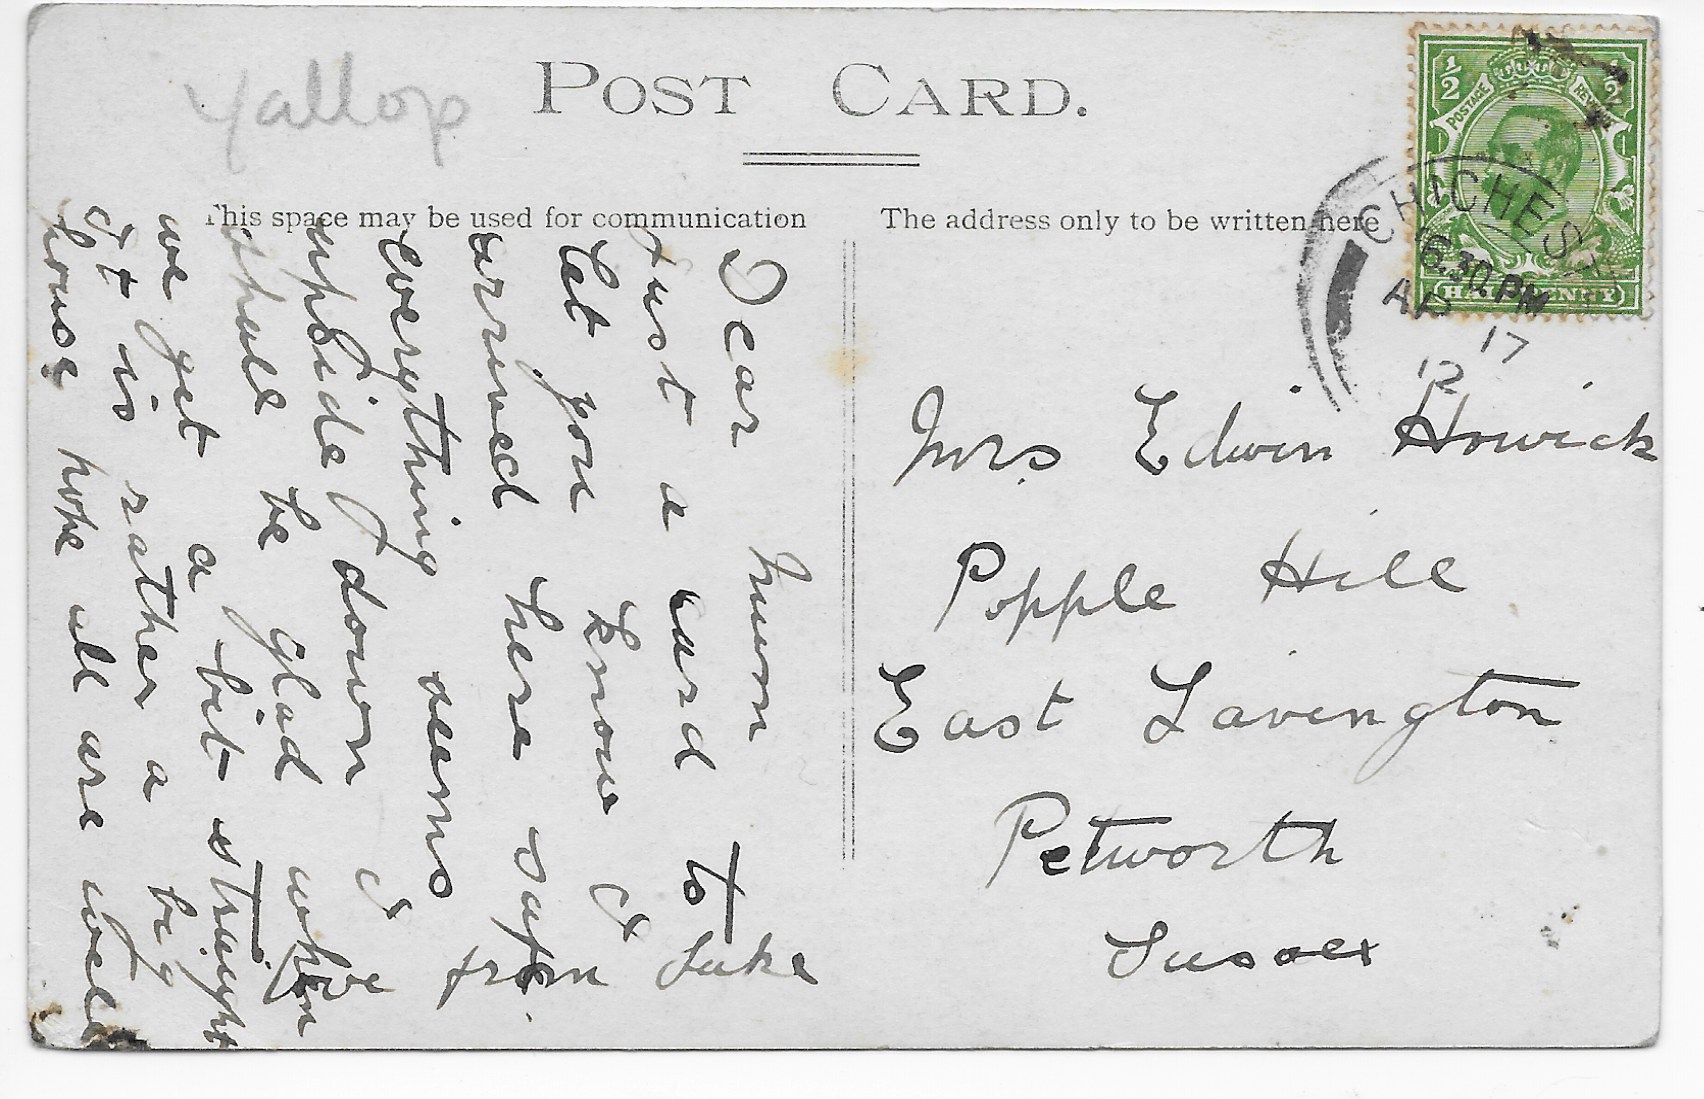 Yallop
POST CARD.
This space may be used for communication
The address only to be written here
1/2
1/2
POSTAGE
HALFPENNY
CHICHEST
6.30 PM
AP 17
12
Dear Mum
Just a card to
let you know I
arrived here safe
everything seems
upside down I
shall be glad when
we get a bit straight
It is rather a big
house hope all are well
from Luke
Mrs Edwin Howick
Popple Hill
East Lavington
Petworth
Sussex